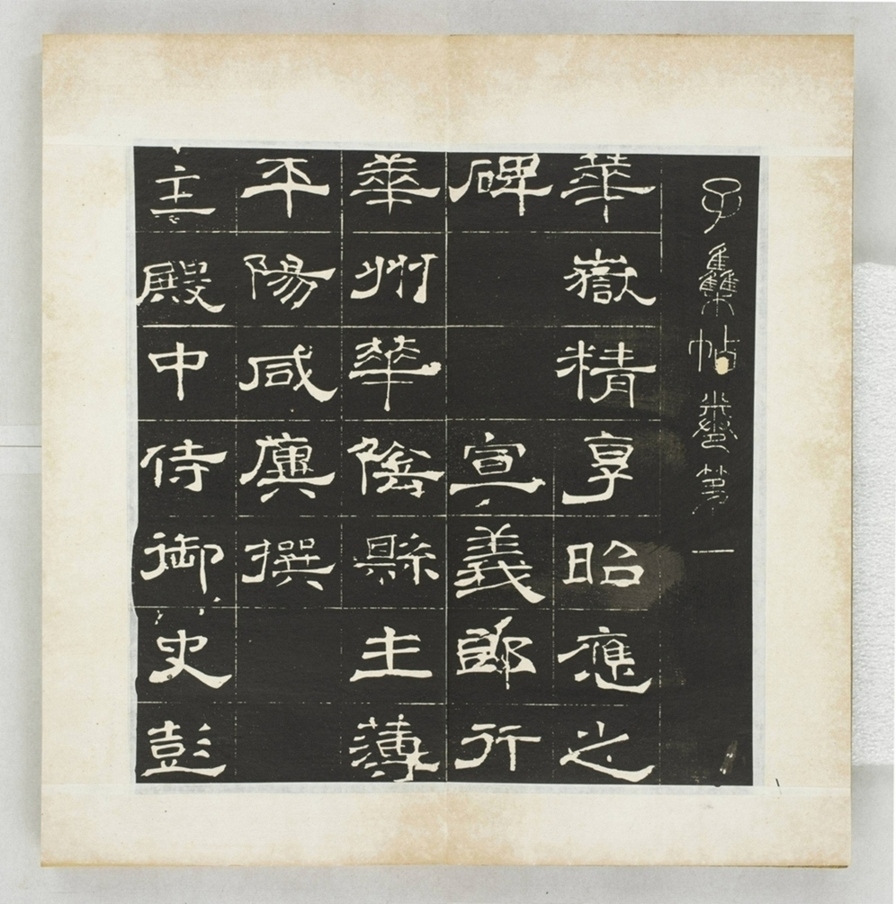 子雧帖卷第一
華嶽精享昭應之
碑 宣義郎行
華州華陰縣主薄
平陽咸廙撰
主殿中侍御史彭